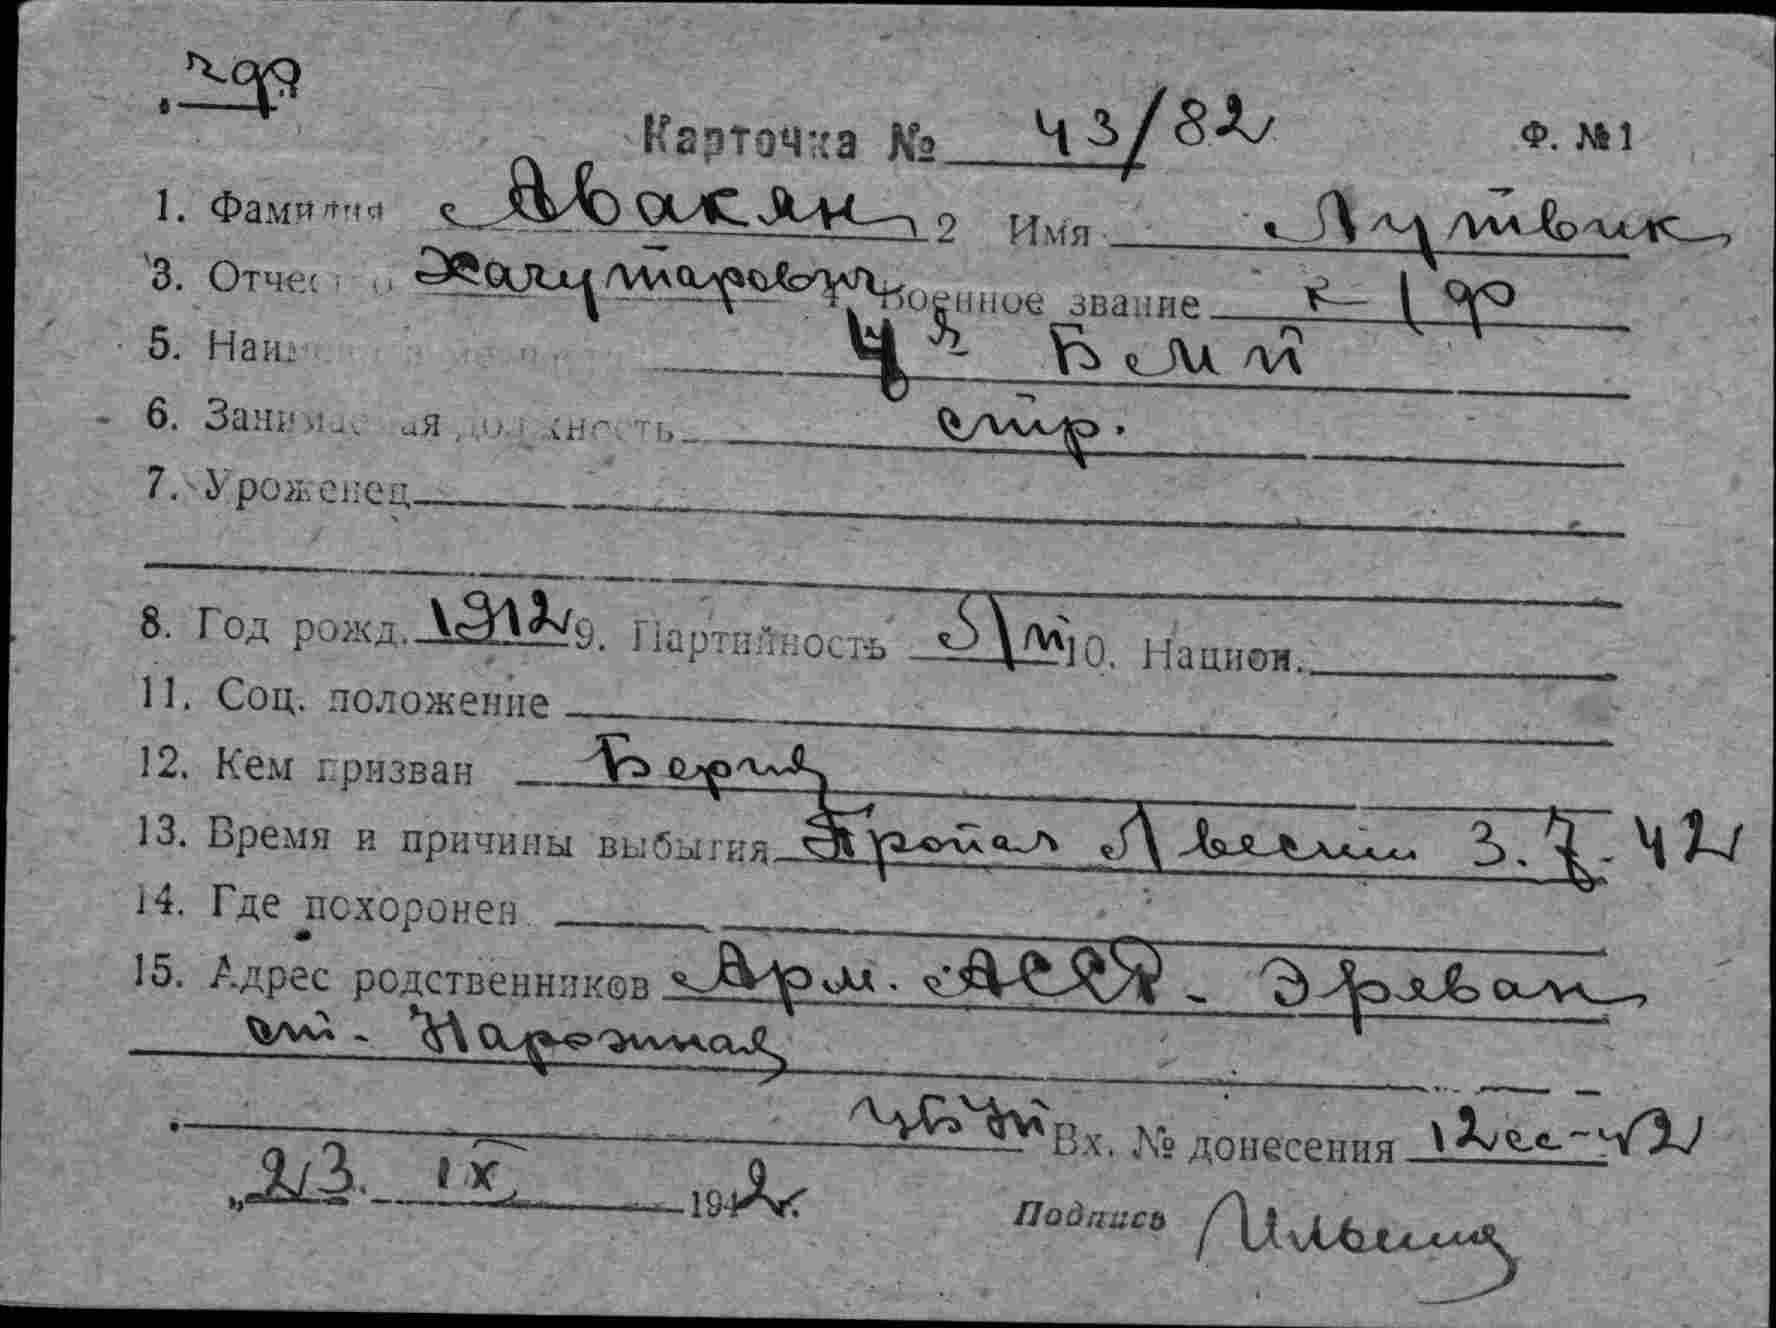 Карточка № 43/82 Ф. №1
1. Фамилия Авакян 2 Имя Лутвик
3. Отчество Хачутарович 4 Военное звание к-1 ф
5. 4й Бмп
6. Занимаемая должность стр.
7. Уроженец
8. Год рожд. 1912 9. Партийность 10. Национ.
11. Соц. положение
12. Кем призван Берия
13. Время и причины выбытия Пропал Авести 3.7.42
14. Где похоронен
15. Адрес родственников Арм. АССР - Эреван
ст. Нарожная
Вх. № донесения 12сс-42
„23. IX 1942г.
Подпись